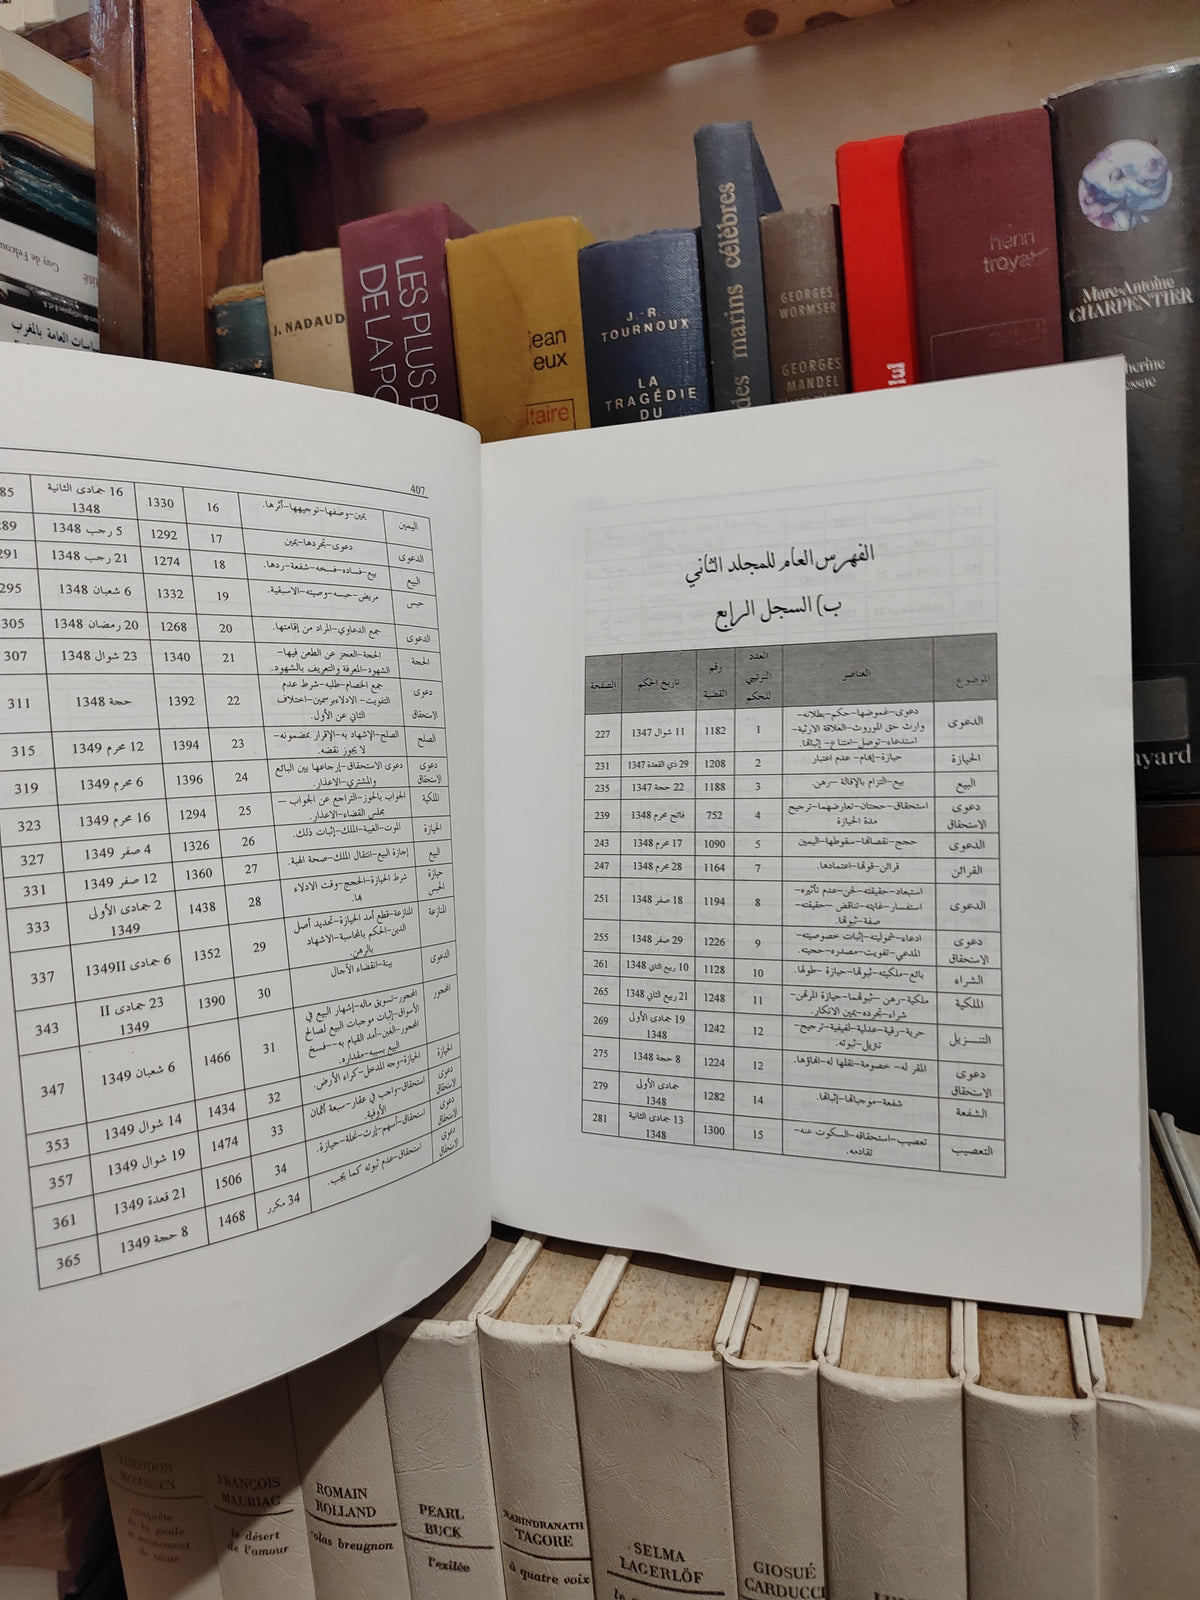 Guy de Felcou
اسات العامة بالمغرب
J. NADAUD
LES PLUS B
DE LA PO
jean
eux
ltaire
J.-R.
TOURNOUX
LA
TRAGÉDIE
DU
des marins célèbres
GEORGES
WORMSER
GEORGES
MANDEL
henri
troyat
Marc-Antoine
CHARPENTIER
herine
essac
ayard
الفهرس العام للمجلد الثاني
ب) السجل الرابع
الموضوع العناصر العدد الترتيبي للحكم رقم القضية تاريخ الحكم الصفحة
الدعوى دعوى-غموضها-حكم-بطلانه- 1 1182 11 شوال 1347 227
وارث حق الموروث-العلاقة الارثية-
استدعاء-توصل-امتناع-إثباتها.
الحيازة حيازة-إبهام-عدم اعتبار 2 1208 29 ذي القعدة 1347 231
البيع بيع-التزام بالإقالة-رهن. 3 1188 22 حجة 1347 235
دعوى الاستحقاق استحقاق-حجتان-تعارضهما-ترجيح 4 752 فاتح محرم 1348 239
مدة الحيازة
الدعوى حجج-نقصانها-سقوطها-اليمين 5 1090 17 محرم 1348 243
القرائن قرائن-قوتها-اعتمادها. 7 1164 28 محرم 1348 247
الدعوى استبعاد-حقيقته-لحن-عدم تأثيره- 8 1194 18 صفر 1348 251
استفسار-غايته-تناقض-حقيقته-
صفة-ثبوتها.
دعوى الاستحقاق ادعاء-شموليته-إثبات خصوصيته- 9 1226 29 صفر 1348 255
المدعي-تفويت-مصدره-حجيته.
الشراء بائع-ملكيته-ثبوتها-حيازة-طولها. 10 1128 10 ربيع الثاني 1348 261
الملكية ملكية-رهن-ثبوتهما-حيازة المرتهن- 11 1248 21 ربيع الثاني 1348 265
شراء-تجرده-يمين الانكار.
التنـزيل حرية-رقية-عدلية-لفيفية-ترجيح- 12 1242 19 جمادى الأولى 1348 269
تنزيل-ثبوته.
دعوى الاستحقاق المقر له-خصومة-نقلها له-انهاؤها. 12 1224 8 حجة 1348 275
الشفعة شفعة-موجباتها-إثباتها. 14 1282 جمادى الأولى 1348 279
التعصيب تعصيب-استحقاقه-السكوت عنه- 15 1300 13 جمادى الثانية 1348 281
تقادمه.
407
اليمين يمين-وصفها-توجيهها-أثرها. 16 1330 16 جمادى الثانية 1348 85
الدعوى دعوى-تجردها-يمين 17 1292 5 رجب 1348 289
البيع بيع-فساده-فسخه-شفعة-ردها. 18 1274 21 رجب 1348 291
حبس مريض-حبسه-وصيته-الاسبقية. 19 1332 6 شعبان 1348 295
الدعوى جمع الدعاوي-المراد من إقامتها. 20 1268 20 رمضان 1348 305
الحجة الحجة-العجز عن الطعن فيها- 21 1340 23 شوال 1348 307
الشهود-المعرفة والتعريف بالشهود.
دعوى الاستحقاق جمع الخصام-طلبه-شرط عدم 22 1392 حجة 1348 311
التفويت-الادلاء برسمين-اختلاف
الثاني عن الأول.
الصلح الصلح-الإشهاد به-الإقرار بمضمونه- 23 1394 12 محرم 1349 315
لا يجوز نقضه.
دعوى الاستحقاق دعوى الاستحقاق-إرجاعها بين البائع 24 1396 6 محرم 1349 319
والمشتري-الاعذار.
الملكية الجواب بالحوز-التراجع عن الجواب- 25 1294 16 محرم 1349 323
مجلس القضاء-الاعذار.
الحيازة الموت-الغيبة-الملك-إثبات ذلك. 26 1326 4 صفر 1349 327
البيع إجازة البيع-انتقال الملك-صحة الهبة. 27 1360 12 صفر 1349 331
حيازة الحبس شرط الحيازة-الحجج-وقت الادلاء بها. 28 1438 2 جمادى الأولى 1349 333
المنازعة المنازعة-قطع أمد الحيازة-تحديد أصل 29 1352 6 جمادى II1349 337
الدين-الحكم بالمحاسبة-الاشهاد
بالرهن.
الدعوى بينة-انقضاء الآجال 30 1390 23 جمادى II 1349 343
المحجور المحجور-تسويق ماله-إشهار البيع في 31 1466 6 شعبان 1349 347
الأسواق-إثبات موجبات البيع لصالح
المحجور-الغبن-أمد القيام به--فسخ
البيع بسببه-مقداره.
الحيازة الحيازة-وجه المدخل-كراء الأرض. 32 1434 14 شوال 1349 353
دعوى الاستحقاق استحقاق-واجب في عقار-سبعة أثمان 33 1474 19 شوال 1349 357
الأوقية.
دعوى الاستحقاق استحقاق-أسهم-إرث-نحلة-حيازة. 34 1506 21 قعدة 1349 361
دعوى الاستحقاق استحقاق-عدم ثبوته كما يجب. 34 مكرر 1468 8 حجة 1349 365
THEODOR
MOMMSEN
conquête
de la gaule
FRANÇOIS
MAURIAC
le désert
de l'amour
ROMAIN
ROLLAND
olas breugnon
PEARL
BUCK
l'exilée
RABINDRANATH
TAGORE
à quatre voix
SELMA
LAGERLÖF
GIOSUÉ
CARDUCCI